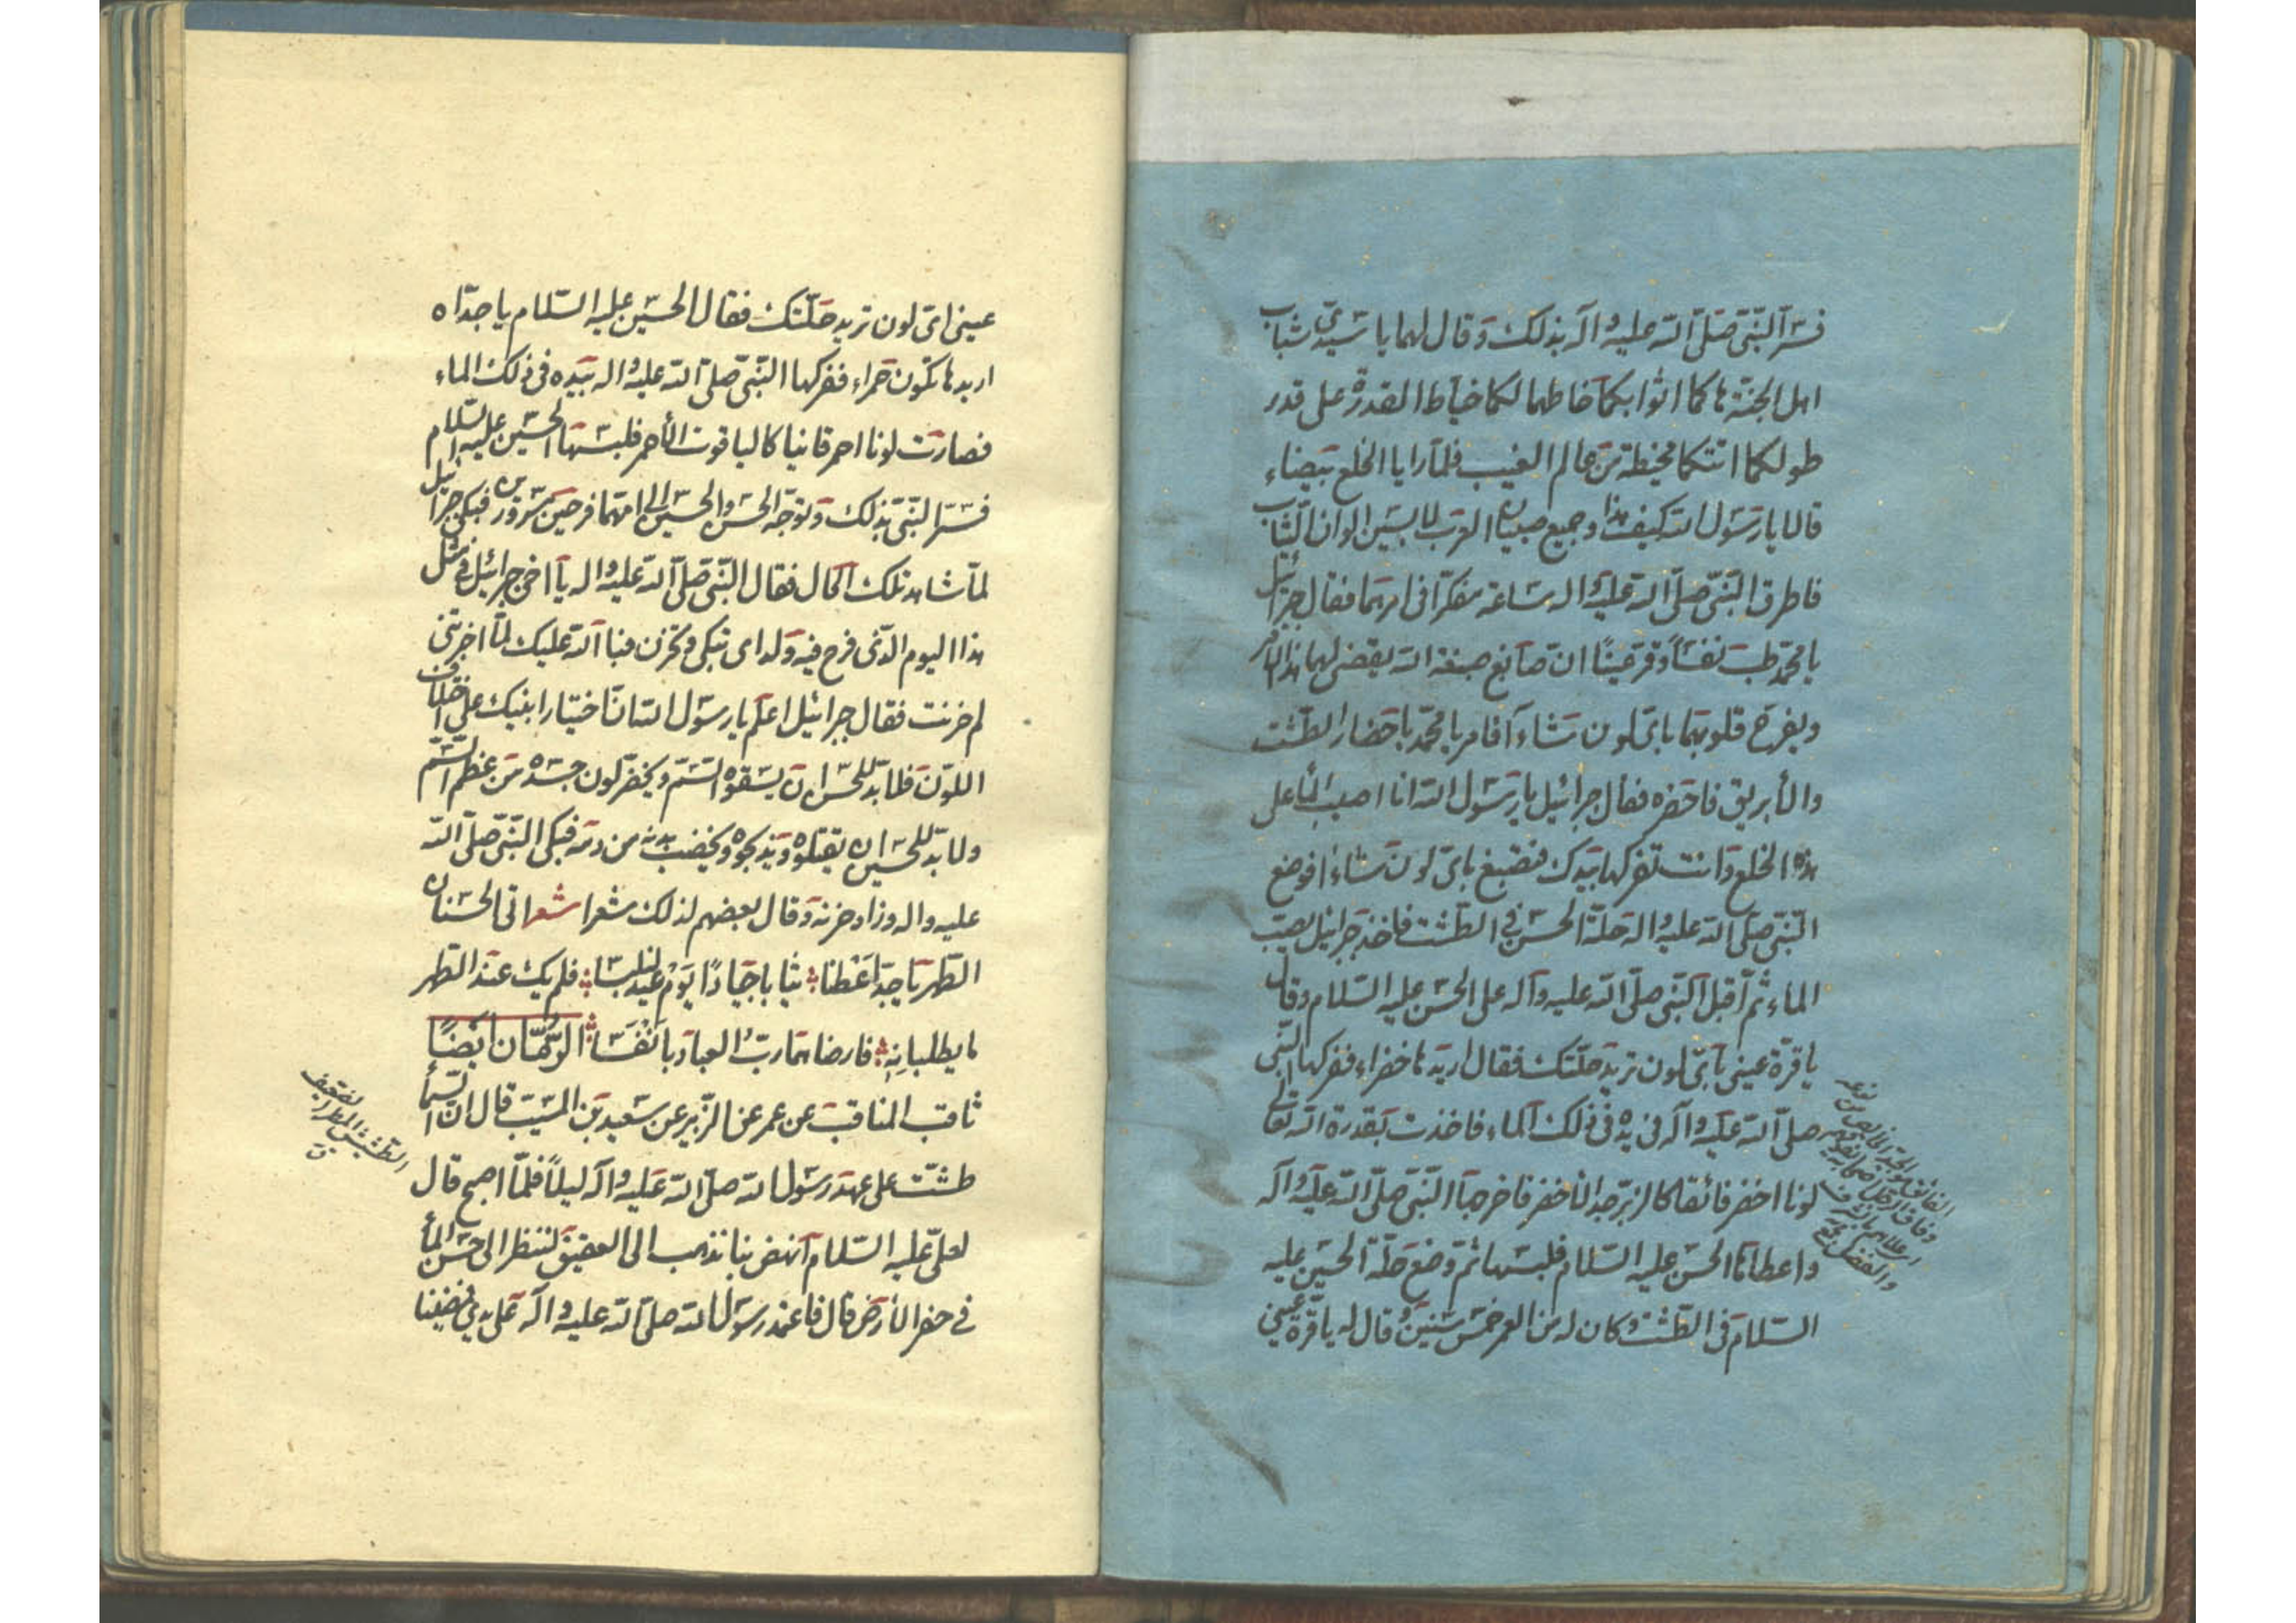 فسرّ النّبيّ صلّى الله عليه وآله بذلك وقال لهما يا سيّدي شباب
اهل الجنّة هاكما اثوابكما خاطهما لكما خيّاط القدرة على قدر
طولكما اتتكما مخيطة من عالم الغيب فلمّا رايا الخلع بيضاء
قالا يا رسول الله كيف هذا وجميع صبيان العرب لابسين الوان الثّياب
فاطرق النّبيّ صلّى الله عليه واله ساعة مفكّرا في امرهما فقال جبرائيل
يا محمّد طب نفسًا وقرّ عينًا انّ صابغ صبغة الله يقضي لهما هذا الامر
ويفرّح قلوبهما باىّ لون شاءآ فامر يا محمّد باحضار الطّشت
والأبريق فاحضره فقال جبرائيل يا رسول الله انا اصبّ الماء على
هذه الخلع وانت تفركها بيدك فتصبغ باىّ لون شاءا فوضع
النّبيّ صلّى الله عليه واله حلّة الحسن في الطّشت فاخذ جبرائيل يصبّ
الماء ثمّ أقبل النّبيّ صلّى الله عليه وآله على الحسن عليه السّلام وقال
يا قرّة عيني باىّ لون تريد حلّتك فقال اريدها خضراء ففركها النّبيّ
صلّى الله عليه وآله في يده في ذلك الماء فاخذت بقدرة الله تعالى
لونا اخضر فائقا كالزبرجد الاخضر فاخرجها النّبيّ صلّى الله عليه وآله
واعطاها الحسن عليه السّلام فلبسها ثمّ وضع حلّة الحسين عليه
السّلام في الطّشت وكان له من العمر خمس سنين وقال له يا قرّة عيني
الفائق الجيّد الخالص من نوعه
وفاق الرجل اصحابه
او علاهم بالشرف
والفضل
عيني اىّ لون تريد حلّتك فقال الحسين عليه السّلام يا جدّاه
اريدها تكون حمراء ففركها النّبيّ صلّى الله عليه واله بيده في ذلك الماء
فصارت لونا احمر قانيا كالياقوت الأحمر فلبسها الحسين عليه السّلام
فسرّ النّبيّ بذلك وتوجّه الحسن والحسين الى امّهما فرحين مسرورين فبكى جبرائيل
لمّا شاهد تلك الحال فقال النّبيّ صلّى الله عليه واله يا اخي جبرائيل في مثل
هذا اليوم الّذي فرح فيه ولداى تبكي وتحزن فبالله عليك لمّا اخبرتني
لم حزنت فقال جبرائيل اعلم يا رسول الله انّ اختيار ابنيك على اختلاف
اللّون فلا بدّ للحسن ان يسقوه السّمّ ويخضرّ لون جسده من عظم السّمّ
ولا بدّ للحسين ان يقتلوه ويذبحوه ويخضب بدنه من دمه فبكى النّبيّ صلّى الله
عليه واله وزاد حزنه وقال بعضهم لذلك شعرا شعر اتى الحسنان
الطّهر يا جدّ اعطنا ثيابا جيادًا يوم عيد لنلبسا فلم يك عند الطّهر
ما يطلبانه فارضاهما ربّ العباد بانفسا الرّمّان ايضًا
ثاقب المناقب عن عمر عن الزّبير عن سعيد بن المسيّب قال انّ السّماء
طشّت على عهد رسول الله صلّى الله عليه وآله ليلاً فلمّا اصبح قال
لعليّ عليه السّلام انهض بنا نذهب الى العقيق لننظر الى حسن الماء
في حفر الأرض قال فاعتمد رسول الله صلّى الله عليه وآله على يدي فمضينا
الطّشّ المطر الضّعيف
ق